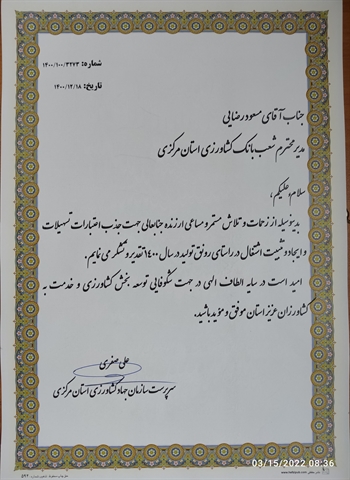 شماره: ۱۴۰۰/۱۰۰/۳۲۷۳
تاریخ: ۱۴۰۰/۱۲/۱۸
جناب آقای مسعود رضایی
مدیر محترم شعب بانک کشاورزی استان مرکزی
سلام علیکم؛
بدینوسیله از زحمات و تلاش مستمر و مساعی ارزنده جنابعالی جهت جذب اعتبارات تسهیلات
و ایجاد و تثبیت اشتغال در راستای رونق تولید در سال ۱۴۰۰ تقدیر و تشکر می نمایم.
امید است در سایه الطاف الهی در جهت شکوفایی توسعه بخش کشاورزی و خدمت به
کشاورزان عزیز استان موفق و مؤید باشید.
علی صفری
سرپرست سازمان جهاد کشاورزی استان مرکزی
03/15/2022 08:36